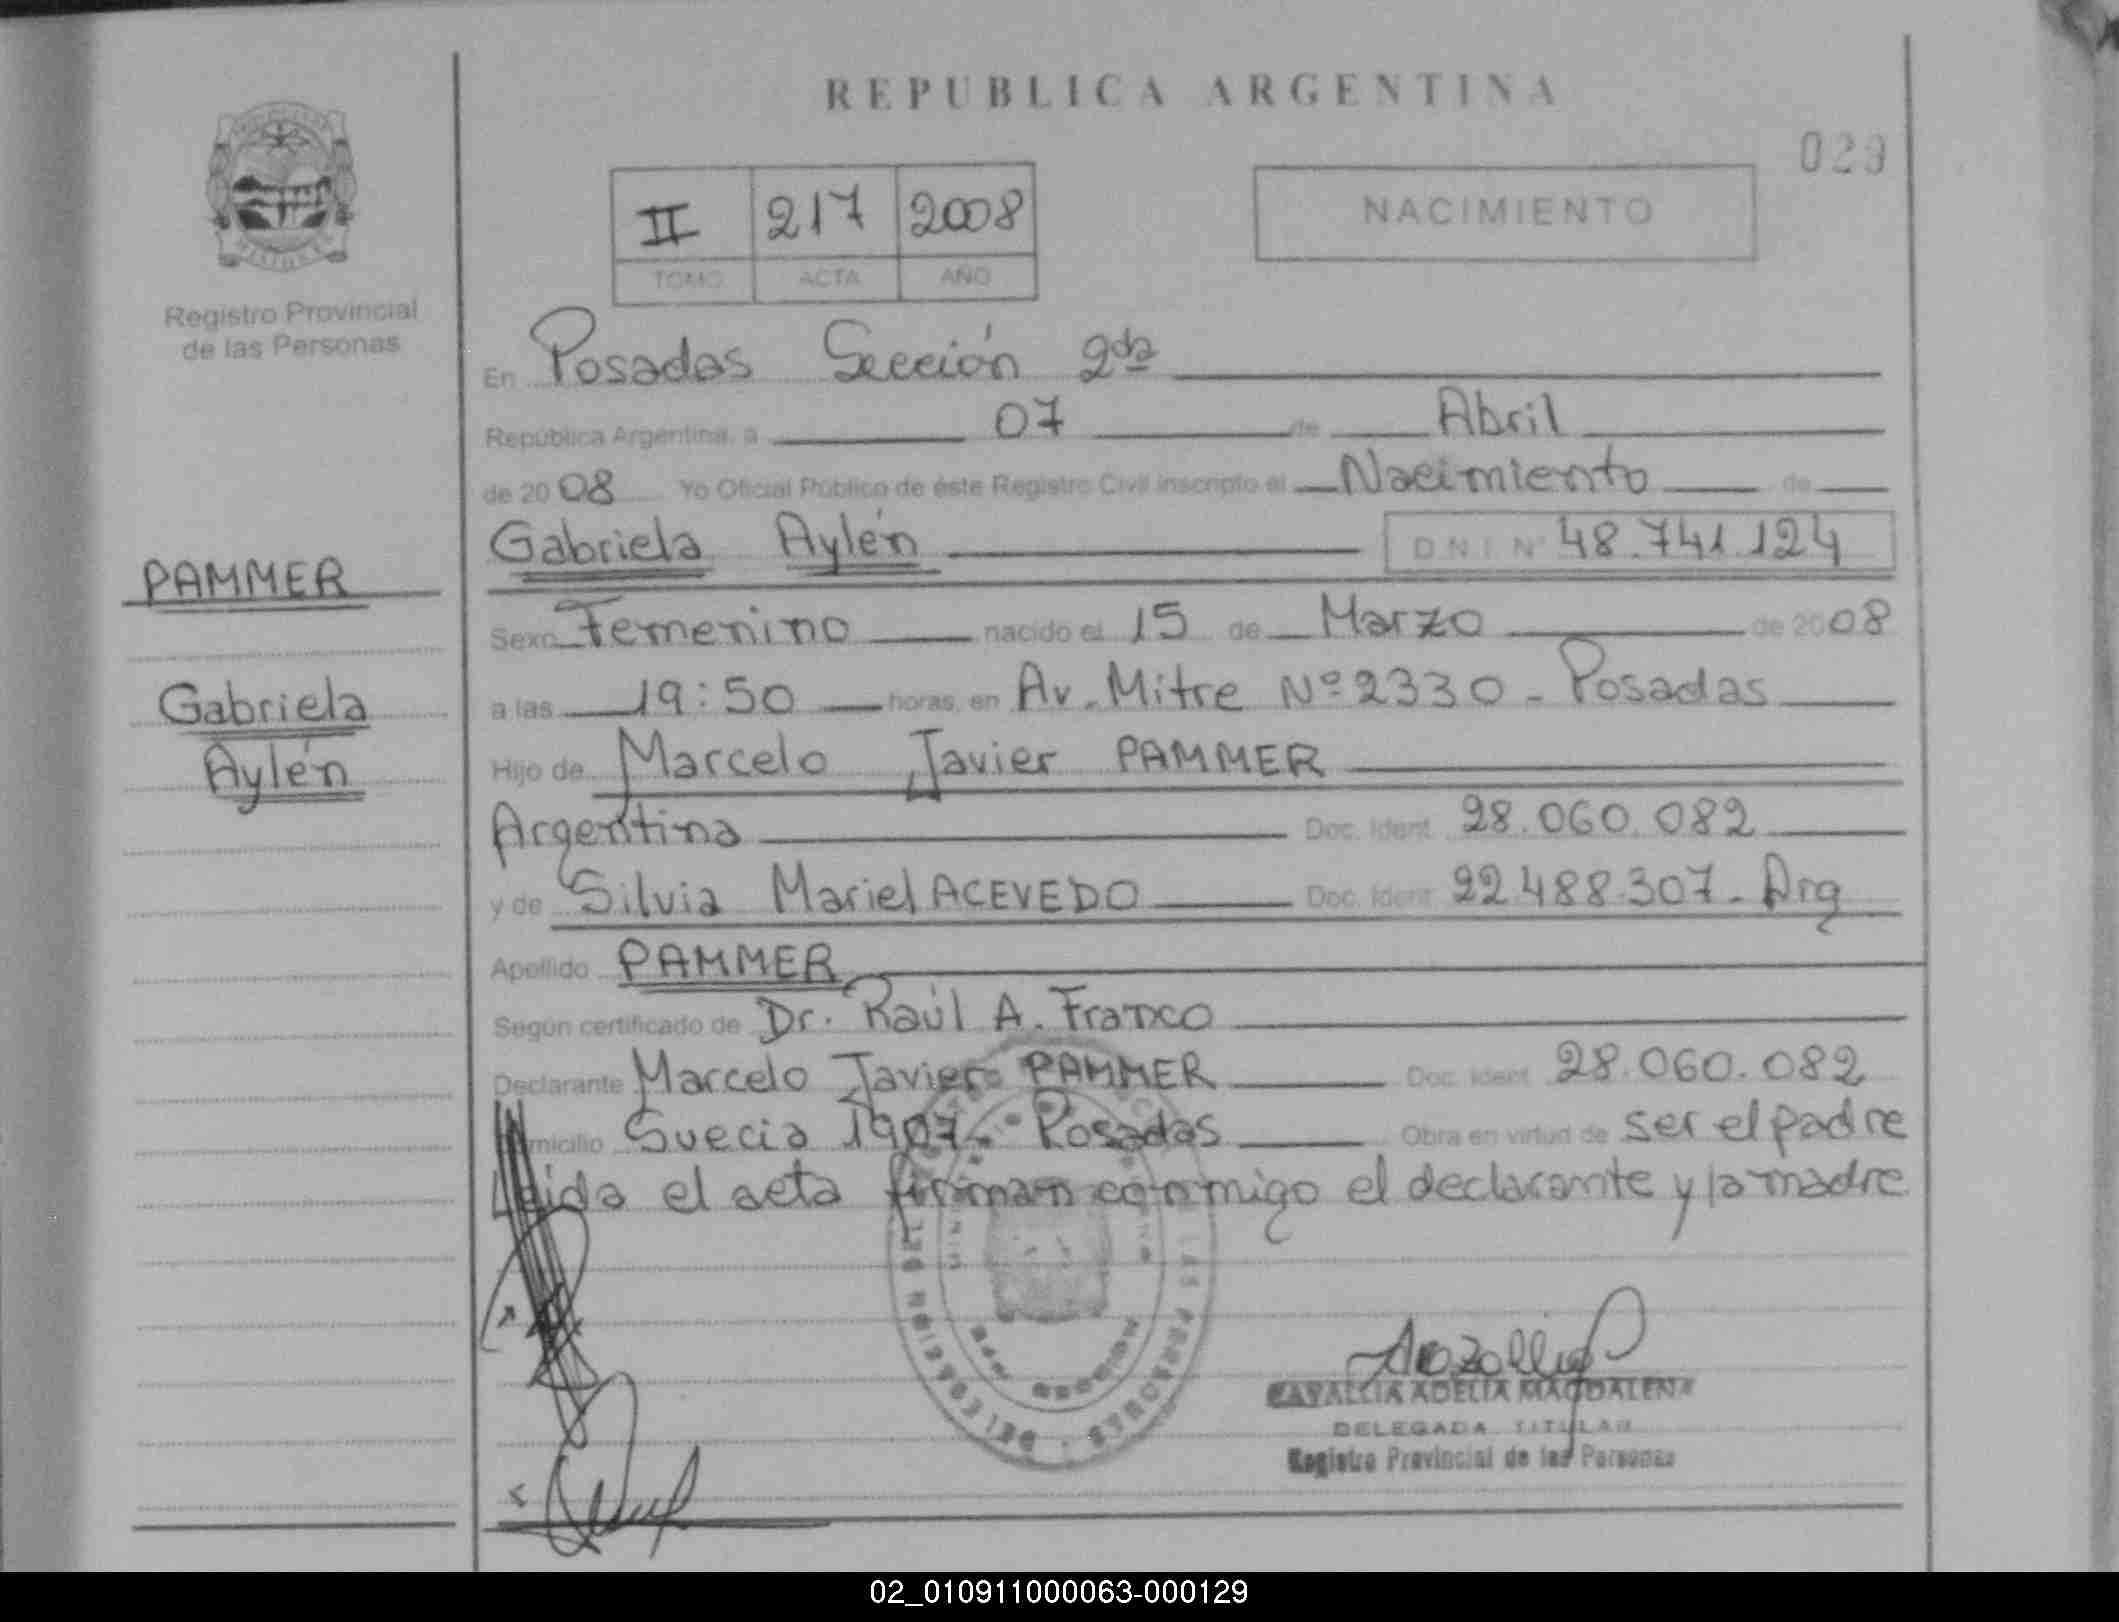 REPUBLICA ARGENTINA
029
II 217 2008
TOMO ACTA AÑO
NACIMIENTO
Registro Provincial
de las Personas
En Posadas Sección 2da
República Argentina, a 07 de Abril
de 2008 Yo Oficial Público de éste Registro Civil inscripto el Nacimiento de
Gabriela Aylén D N I N° 48.741.124
PAMMER
Sexo Femenino nacido el 15 de Marzo de 2008
Gabriela
Aylén
a las 19:50 horas, en Av. Mitre Nº 2330 - Posadas
Hijo de Marcelo Javier PAMMER
Argentina Doc. Ident. 28.060.082
y de Silvia Mariel ACEVEDO Doc. Ident. 22.488.307 - Arg
Apellido PAMMER
Según certificado de Dr. Raúl A. Franco
Declarante Marcelo Javier PAMMER Doc. Ident. 28.060.082
micilio Suecia 1907 - Posadas Obra en virtud de ser el padre
Leída el acta firman conmigo el declarante y la madre
ADELIA MAGDALENA
DELEGADA TITULAR
Registro Provincial de las Personas
02_010911000063-000129